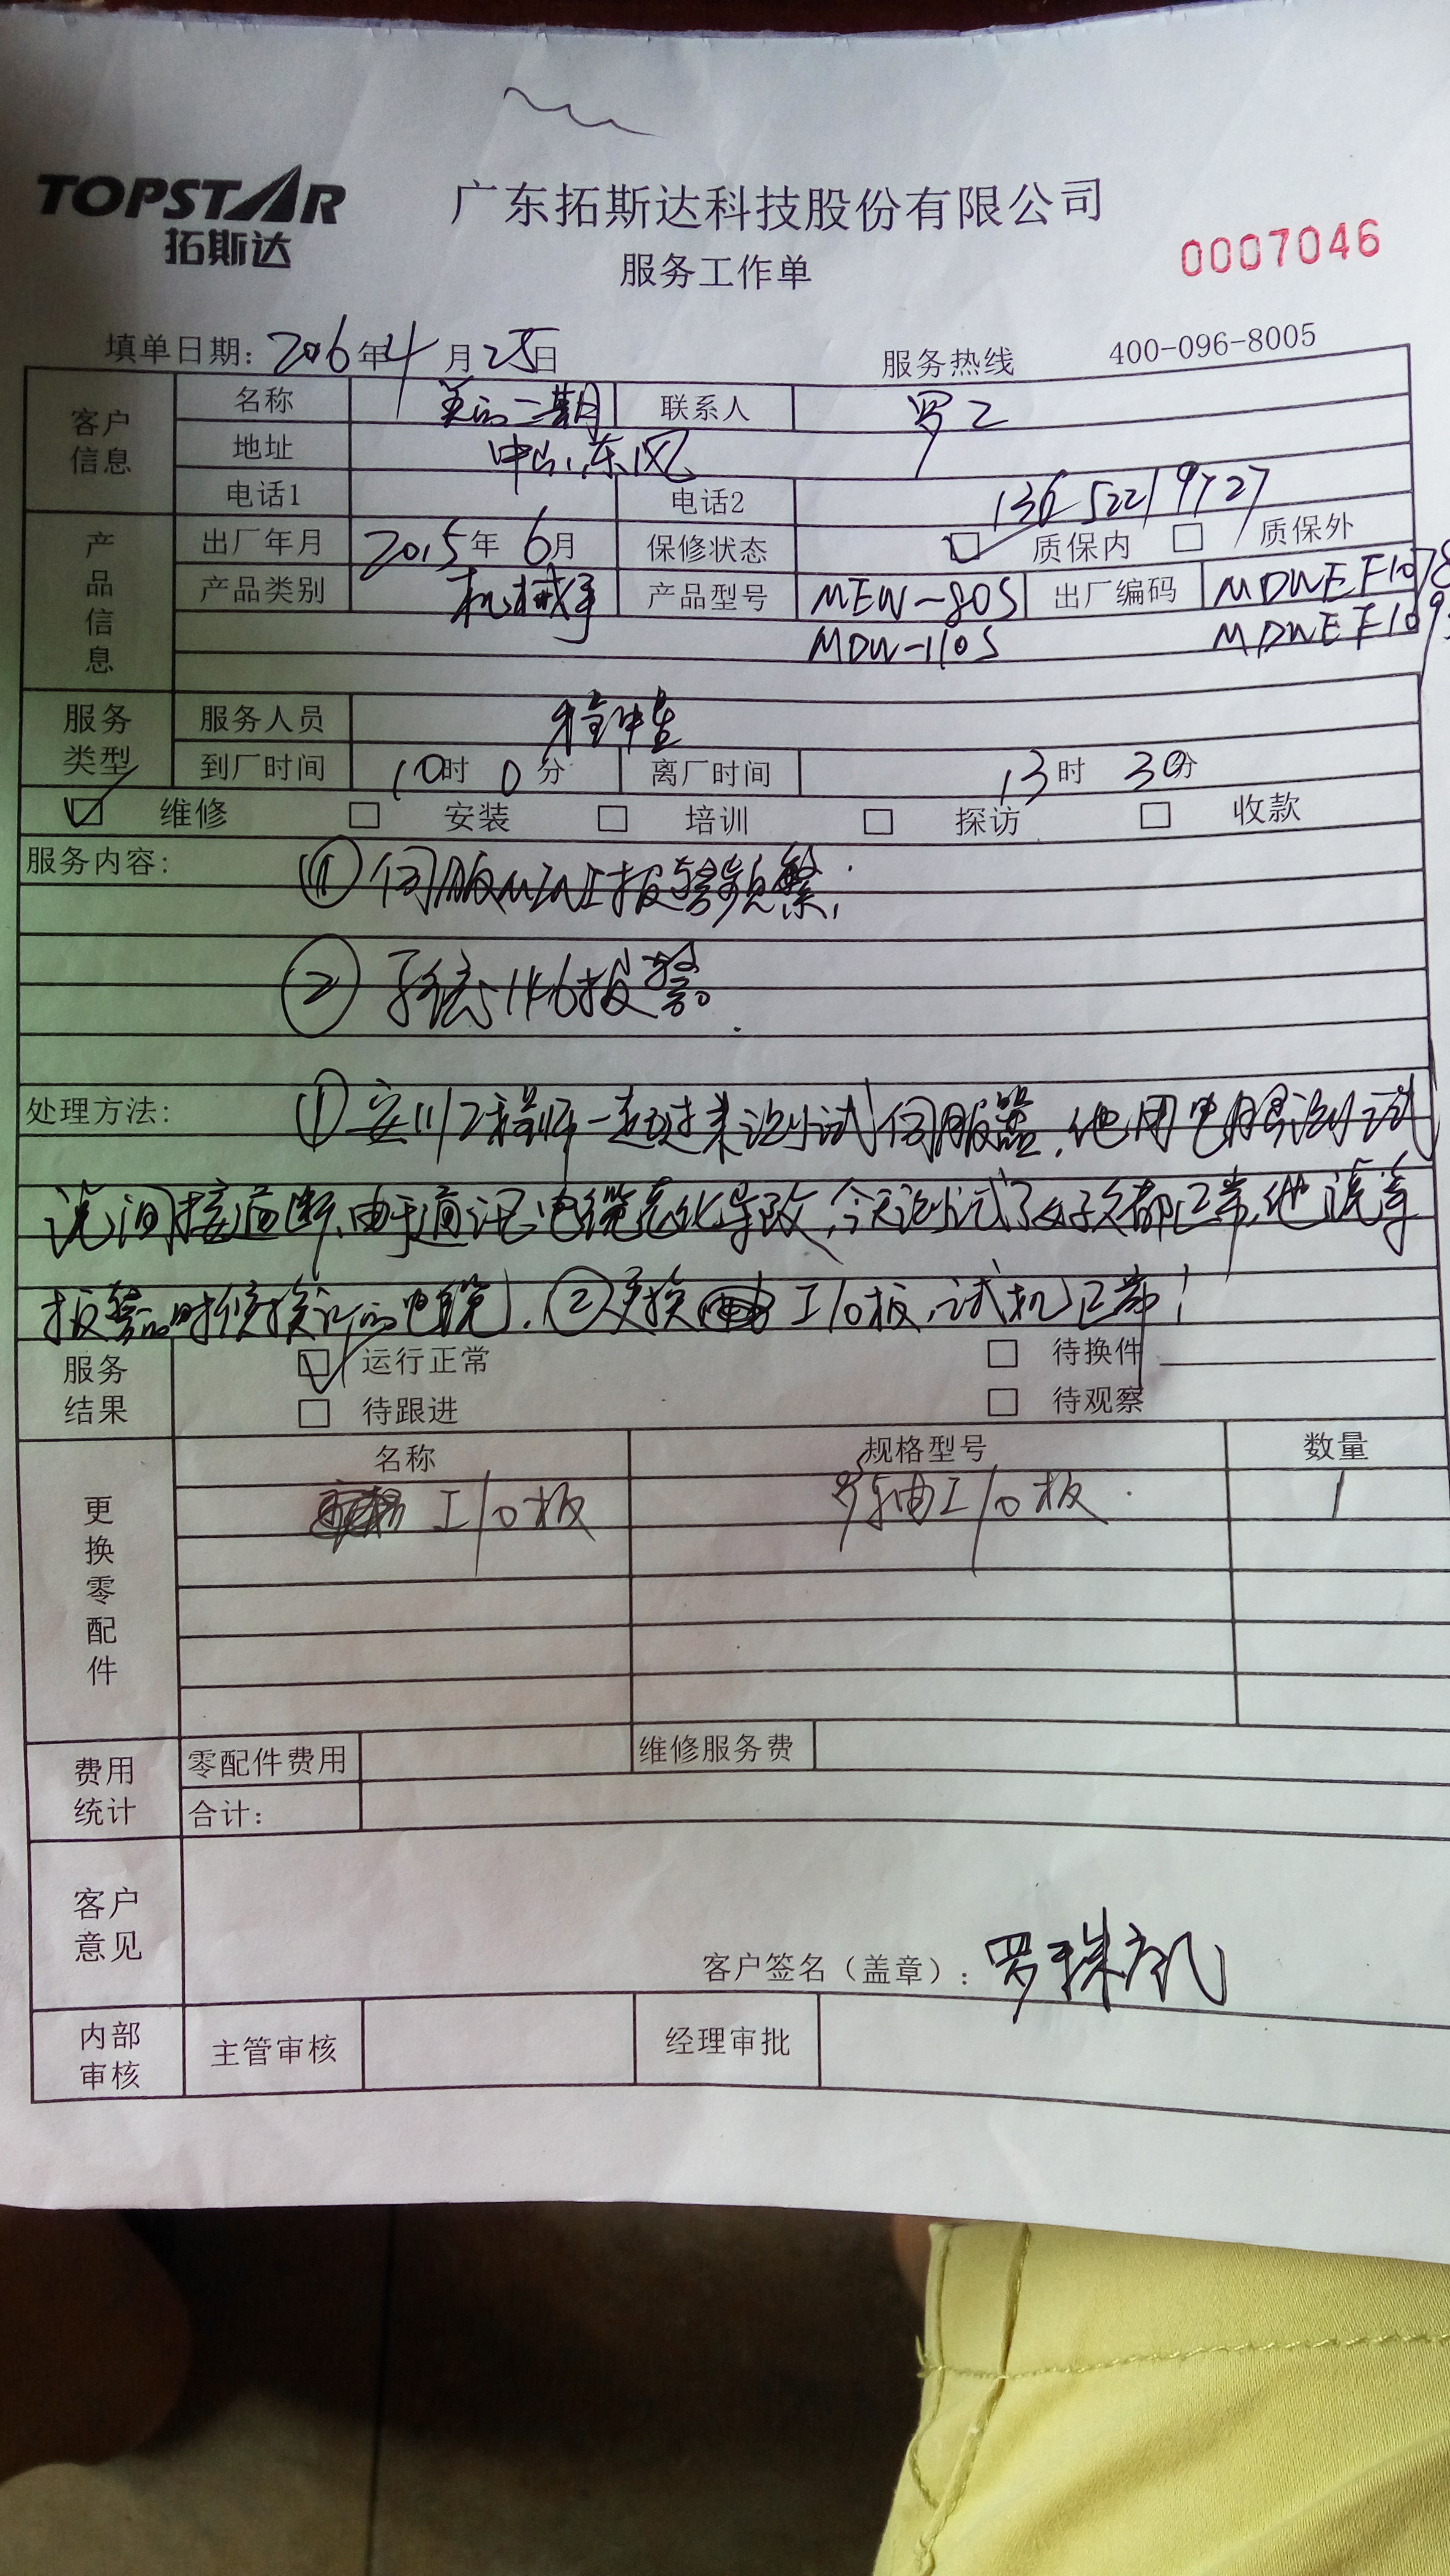 TOPSTAR
拓斯达
广东拓斯达科技股份有限公司
服务工作单
0007046
填单日期: 2016年4月25日 服务热线 400-096-8005
客户信息 名称 美的二期 联系人 罗工
地址 中山东风
电话1 电话2 13652219727
产品信息 出厂年月 2015年6月 保修状态 质保内 质保外
产品类别 机械手 产品型号 MEW-80S 出厂编码 MDWEF1078
MDW-110S MDWEF109
服务类型 服务人员
到厂时间 10时0分 离厂时间 13时30分
维修 安装 培训 探访 收款
服务内容: ① 伺服 报警频繁;
② 系统146报警。
处理方法: ① 安川工程师一起过来测试伺服器,他用电脑测试
说间接通断,由于通讯电缆老化导致,今天测试了好多都正常,他说等
报警的时候换 的电缆,②更换 I/O板,试机正常!
服务结果 运行正常 待换件
待跟进 待观察
更换零配件 名称 规格型号 数量
I/O板 轴I/O板. 1
费用统计 零配件费用 维修服务费
合计:
客户意见
客户签名(盖章): 罗珠
内部审核 主管审核 经理审批